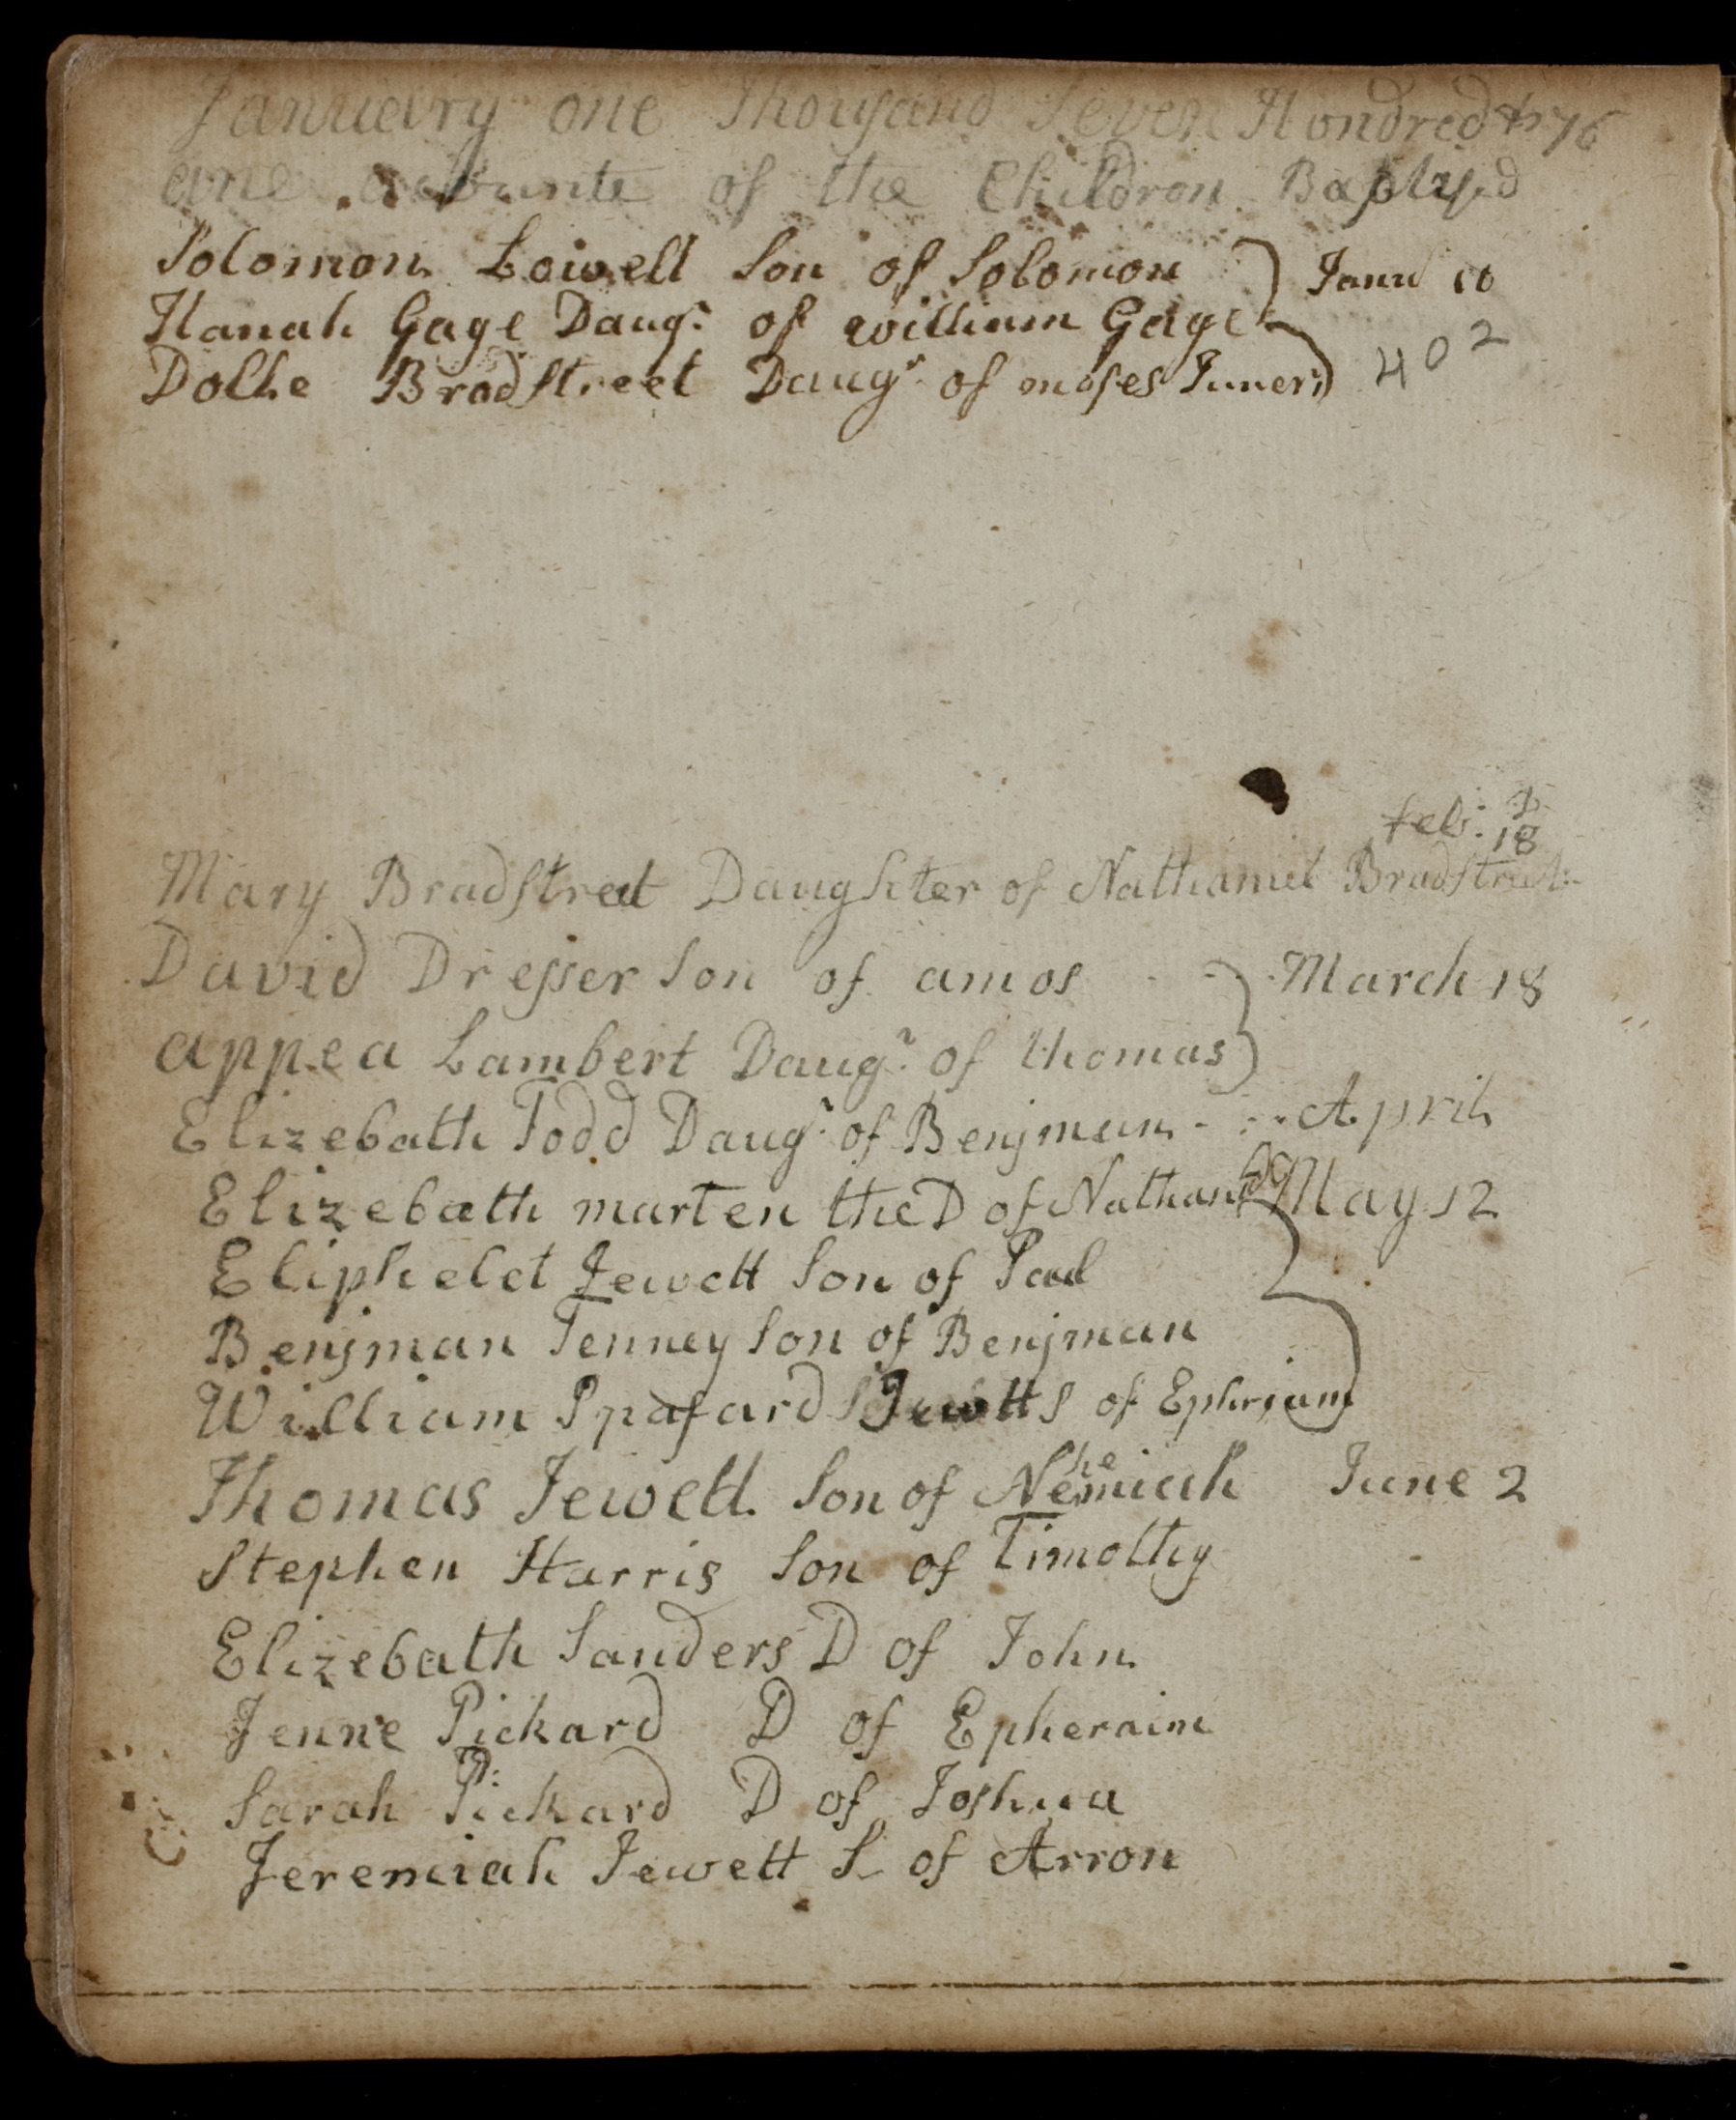 January one Thousand Seven Hondred & 76
ane acounte of the Childron Baptysed
Solomon Lowell Son of Solomon Janu 10
Hanah Gage Daugr. of william Gage
Dolle Bradstreet Daugr. of moses Juner 402
feb: 18
Mary Bradstreet Daughter of Nathaniel Bradstreet
David Dresser Son of amos - - March 18
appea Lambert Daugr. of thomas
Elizebath Todd Daugr. of Benjman - - April
Elizebath marten the D of Nathan May 12
Eliphelet Jewett Son of Paul
Benjman Tenney Son of Benjman
William Spafard Jewett S of Ephriam
Thomas Jewett Son of Nehemiah June 2
Stephen Harris Son of Timothy
Elizebath Sanders D of John
Jenne Pickard D of Epheraim
Sarah Pickard D of Joshua
Jeremiah Jewett S of Arron